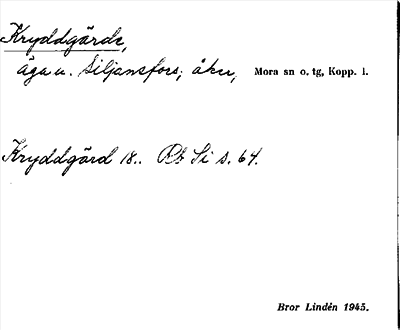 Kryddgärde,
äga u. Siljansfors; åker, Mora sn o. tg, Kopp. l.
Kryddgård 18.. Si s. 64.
Bror Lindén 1945.